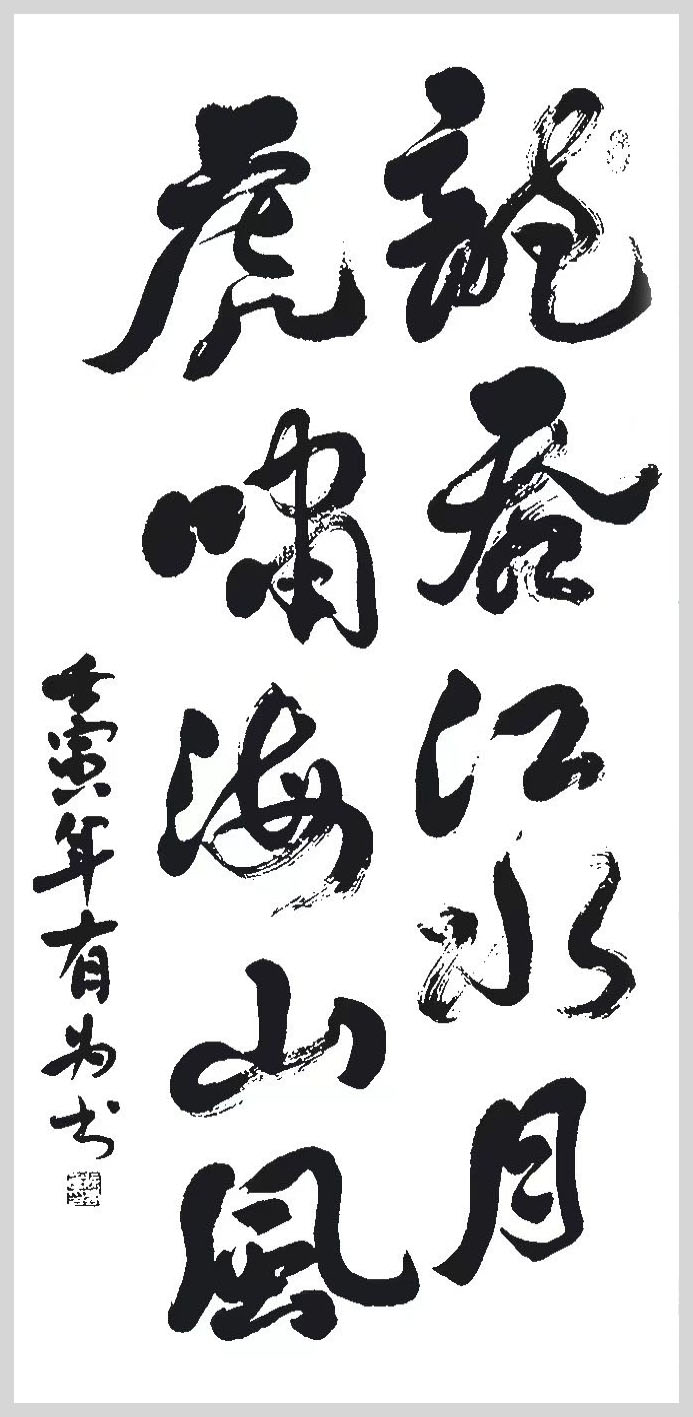 龍吞江水月
虎嘯海山風
壬寅年有为书